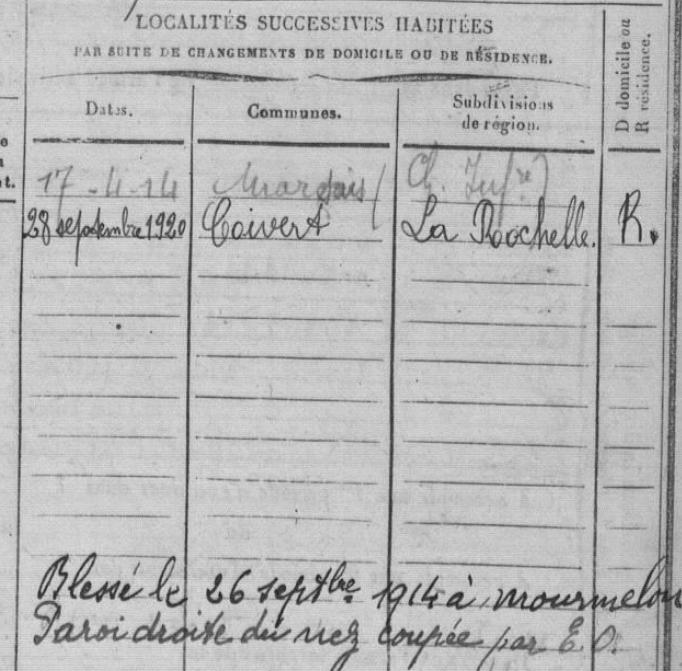 LOCALITÉS SUCCESSIVES HABITÉES
PAR SUITE DE CHANGEMENTS DE DOMICILE OU DE RÉSIDENCE.
Dates.
Communes.
Subdivisions
de région.
D domicile ou
R résidence.
17-4-14 (Ch. Infre)
28 septembre 1920 Coivert La Rochelle. R.
Blessé le 26 septbre 1914 à mourmelon
Paroi droite du nez coupée par E. O.